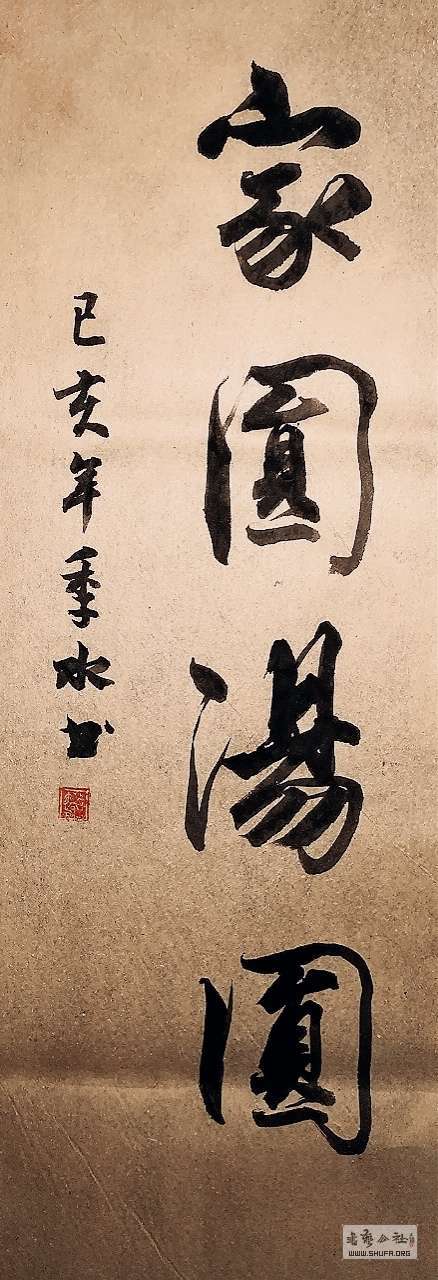 家圓湯圓
己亥年季水书
书艺公社
WWW.SHUFA.ORG